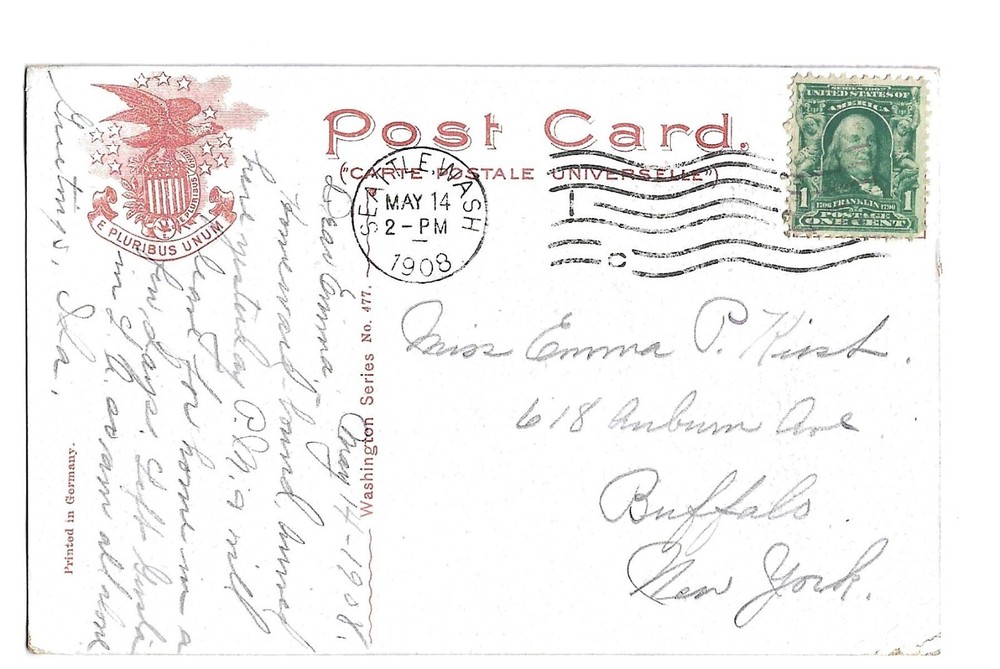 E PLURIBUS UNUM
Post Card.
("CARTE POSTALE UNIVERSELLE")
SEATTLE, WASH
MAY 14
2-PM
1908
SERIES 1902
UNITED STATES OF
AMERICA
1 1
1706 FRANKLIN 1790
POSTAGE
ONE CENT
Miss Emma P. Kirst.
618 Auburn Ave
Buffalo
New York.
Washington Series No. 477.
Printed in Germany.
May 14-1908.
Dear Emma,-
Homeward-bound, arrived
here yesterday P.M. & will
leave for home in a
few days. Left
in L.A. so am all alone